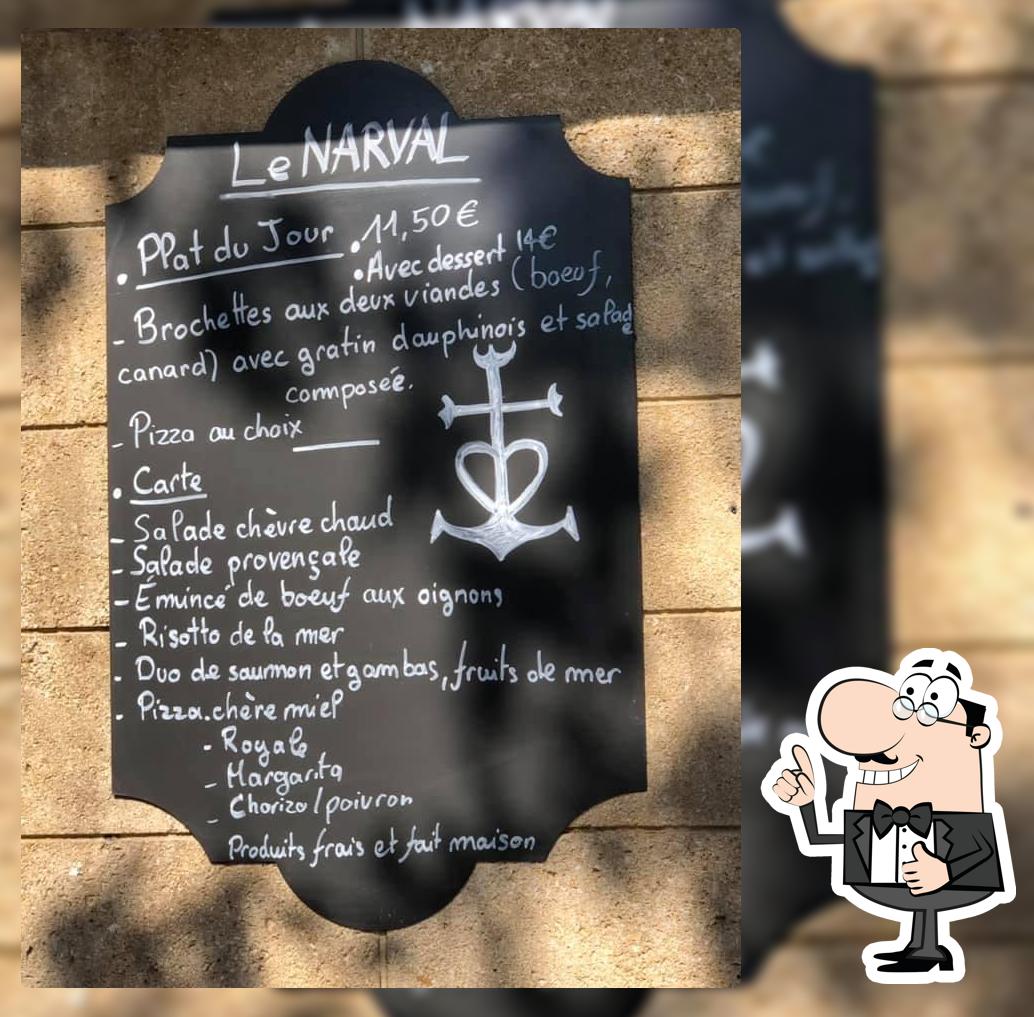 Le NARVAL
. Plat du Jour . 11,50€
. Avec dessert 14€
- Brochettes aux deux viandes (boeuf,
canard) avec gratin dauphinois et salade
composée.
- Pizza au choix
. Carte
- Salade chèvre chaud
- Salade provençale
- Émincé de boeuf aux oignons
- Risotto de la mer
- Duo de saumon et gambas, fruits de mer
- Pizza.chère miel
- Royale
- Margarita
- Chorizo/poivron
Produits frais et fait maison